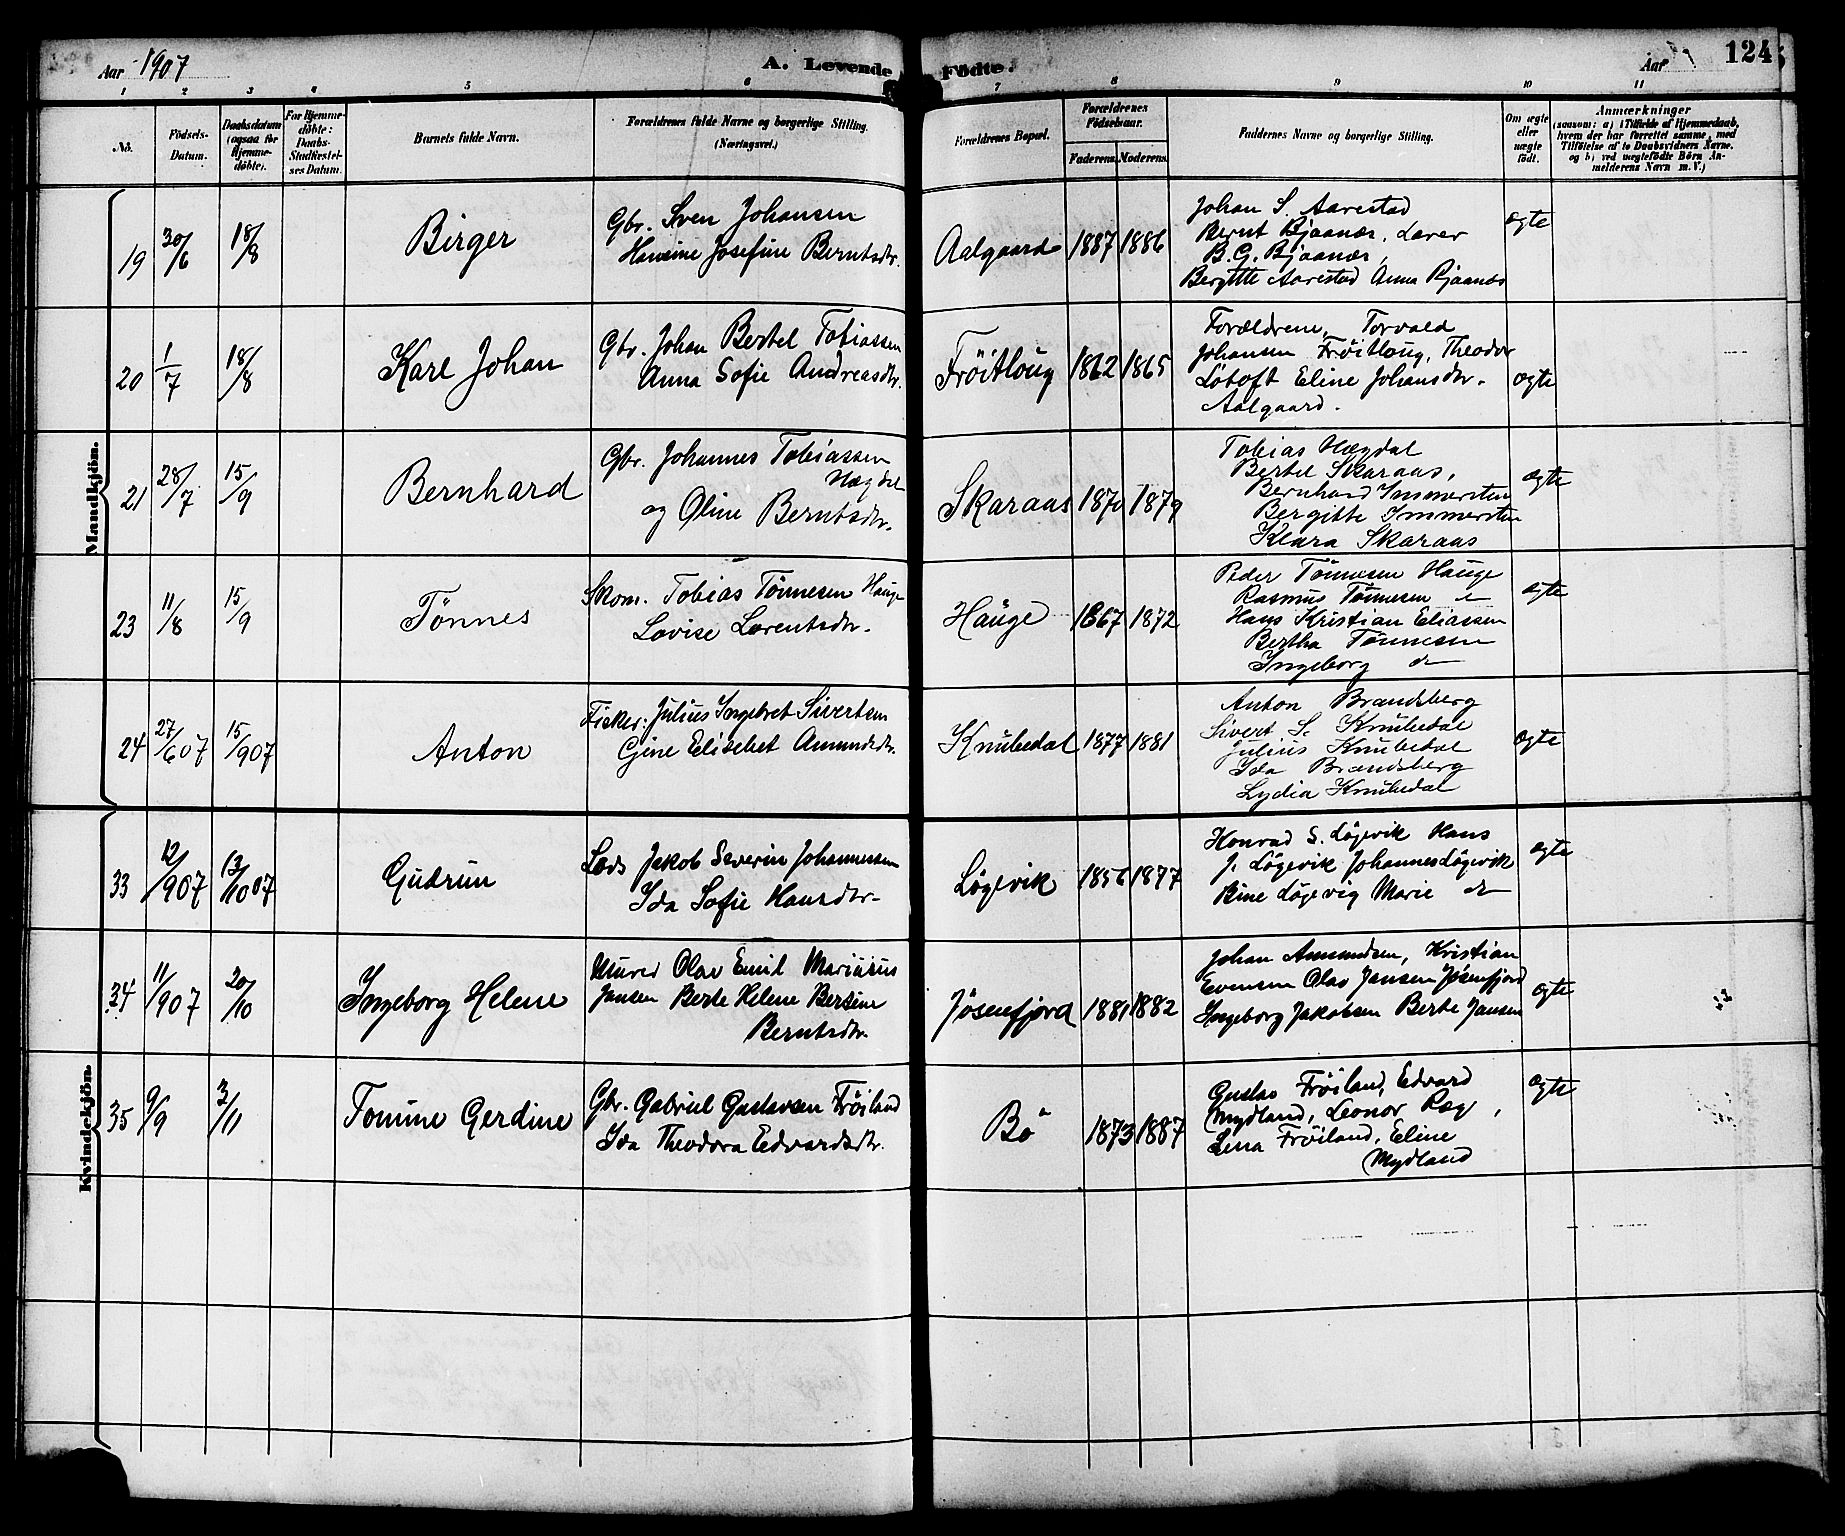 Aar 1907
A. Levende Födte.
Aar
124
1 2 3 4 5 6 7 8 9 10 11
No.
Födsels-
Datum.
Daabsdatum
(ogsaa for
Hjemme-
döbte).
For Hjemme-
döbte:
Daabs-
Stadfæstel-
ses Datum.
Barnets fulde Navn.
Forældrenes fulde Navne og borgerlige Stilling.
(Næringsvei.)
Forældrenes Bopæl.
Forældrenes
Födselsaar.
Faderens. Moderens.
Faddernes Navne og borgerlige Stilling.
Om ægte
eller
uægte
født.
Anmærkninger
(saasom: a) i Tilfælde af Hjemmedaab,
hvem der har forrettet samme, med
Tilföielse af to Daabsvidners Navne,
og b) ved uægtefödte Börn An-
melderens Navn m.V.)
Mandkjön.
19 30/6 18/8 Birger
Gbr. Sven Johansen
Hansine Josefine Berntsdtr.
Aalgaard 1887 1886
Johan S. Aarestad
Bernt Bjaanæs, Lærer
B. G. Bjaanæs,
Bergitte Aarestad Anna Bjaanæs
ægte
20 1/7 18/8 Karl Johan
Gbr. Johan Bertel Tobiassen
Anna Sofie Andreasdtr.
Fröitloug 1862 1865
Forældrene, Torvald
Johansen Fröitloug, Theodor
Løtoft Eline Johansdtr.
Aalgaard.
ægte
21 28/7 15/9 Bernhard
Gbr. Johannes Tobiassen
Hægdal
og Oline Berntsdtr.
Skaraas 1870 1879
Tobias Hægdal
Bertel Skaraas,
Bernhard Immersten
Bergitte Immersten
Klara Skaraas
ægte
23 11/8 15/9 Tønnes
Skom. Tobias Tönnesen Hauge
Lovise Lorentsdtr.
Hauge 1867 1872
Peder Tönnesen Hauge
Rasmus Tönnesen
Hans Kristian Eliassen
Bertha Tönnesen
Ingeborg do
ægte
24 27/607 15/907 Anton
Fisker: Julius Ingebret Sivertsen
Gine Elisebet Amundsdtr.
Knubedal 1877 1881
Anton Brandsberg
Sivert S. Knubedal
Julius Knubedal
Ida Brandsberg
Lydia Knubedal
ægte
Kvindekjön.
33 12/907 13/1007 Gudrun
Lods Jakob Severin Johannessen
Ida Sofie Hansdtr.
Løgevik 1856 1877
Konrad S. Løgevik Hans
J. Løgevik Johannes Løgevik
Bine Løgevig Marie do
ægte
34 11/907 20/10 Ingeborg Helene
Murer Olav Emil Mariusus
Jansen Berte Helene Bertine
Berntsdtr.
Jösenfjord 1881 1882
Johan Amundsen, Kristian
Evensen Olav Jansen Jösenfjord
Ingeborg Jakobsen Berte Jansen
ægte
35 9/9 3/11 Tomine Gerdine
Gbr. Gabriel Gustavsen Fröiland
Ida Theodora Edvardsdtr.
Bö 1873 1887
Gustav Fröiland, Edvard
Mydland, Leonor Ræg,
Lina Fröiland, Eline
Mydland
ægte